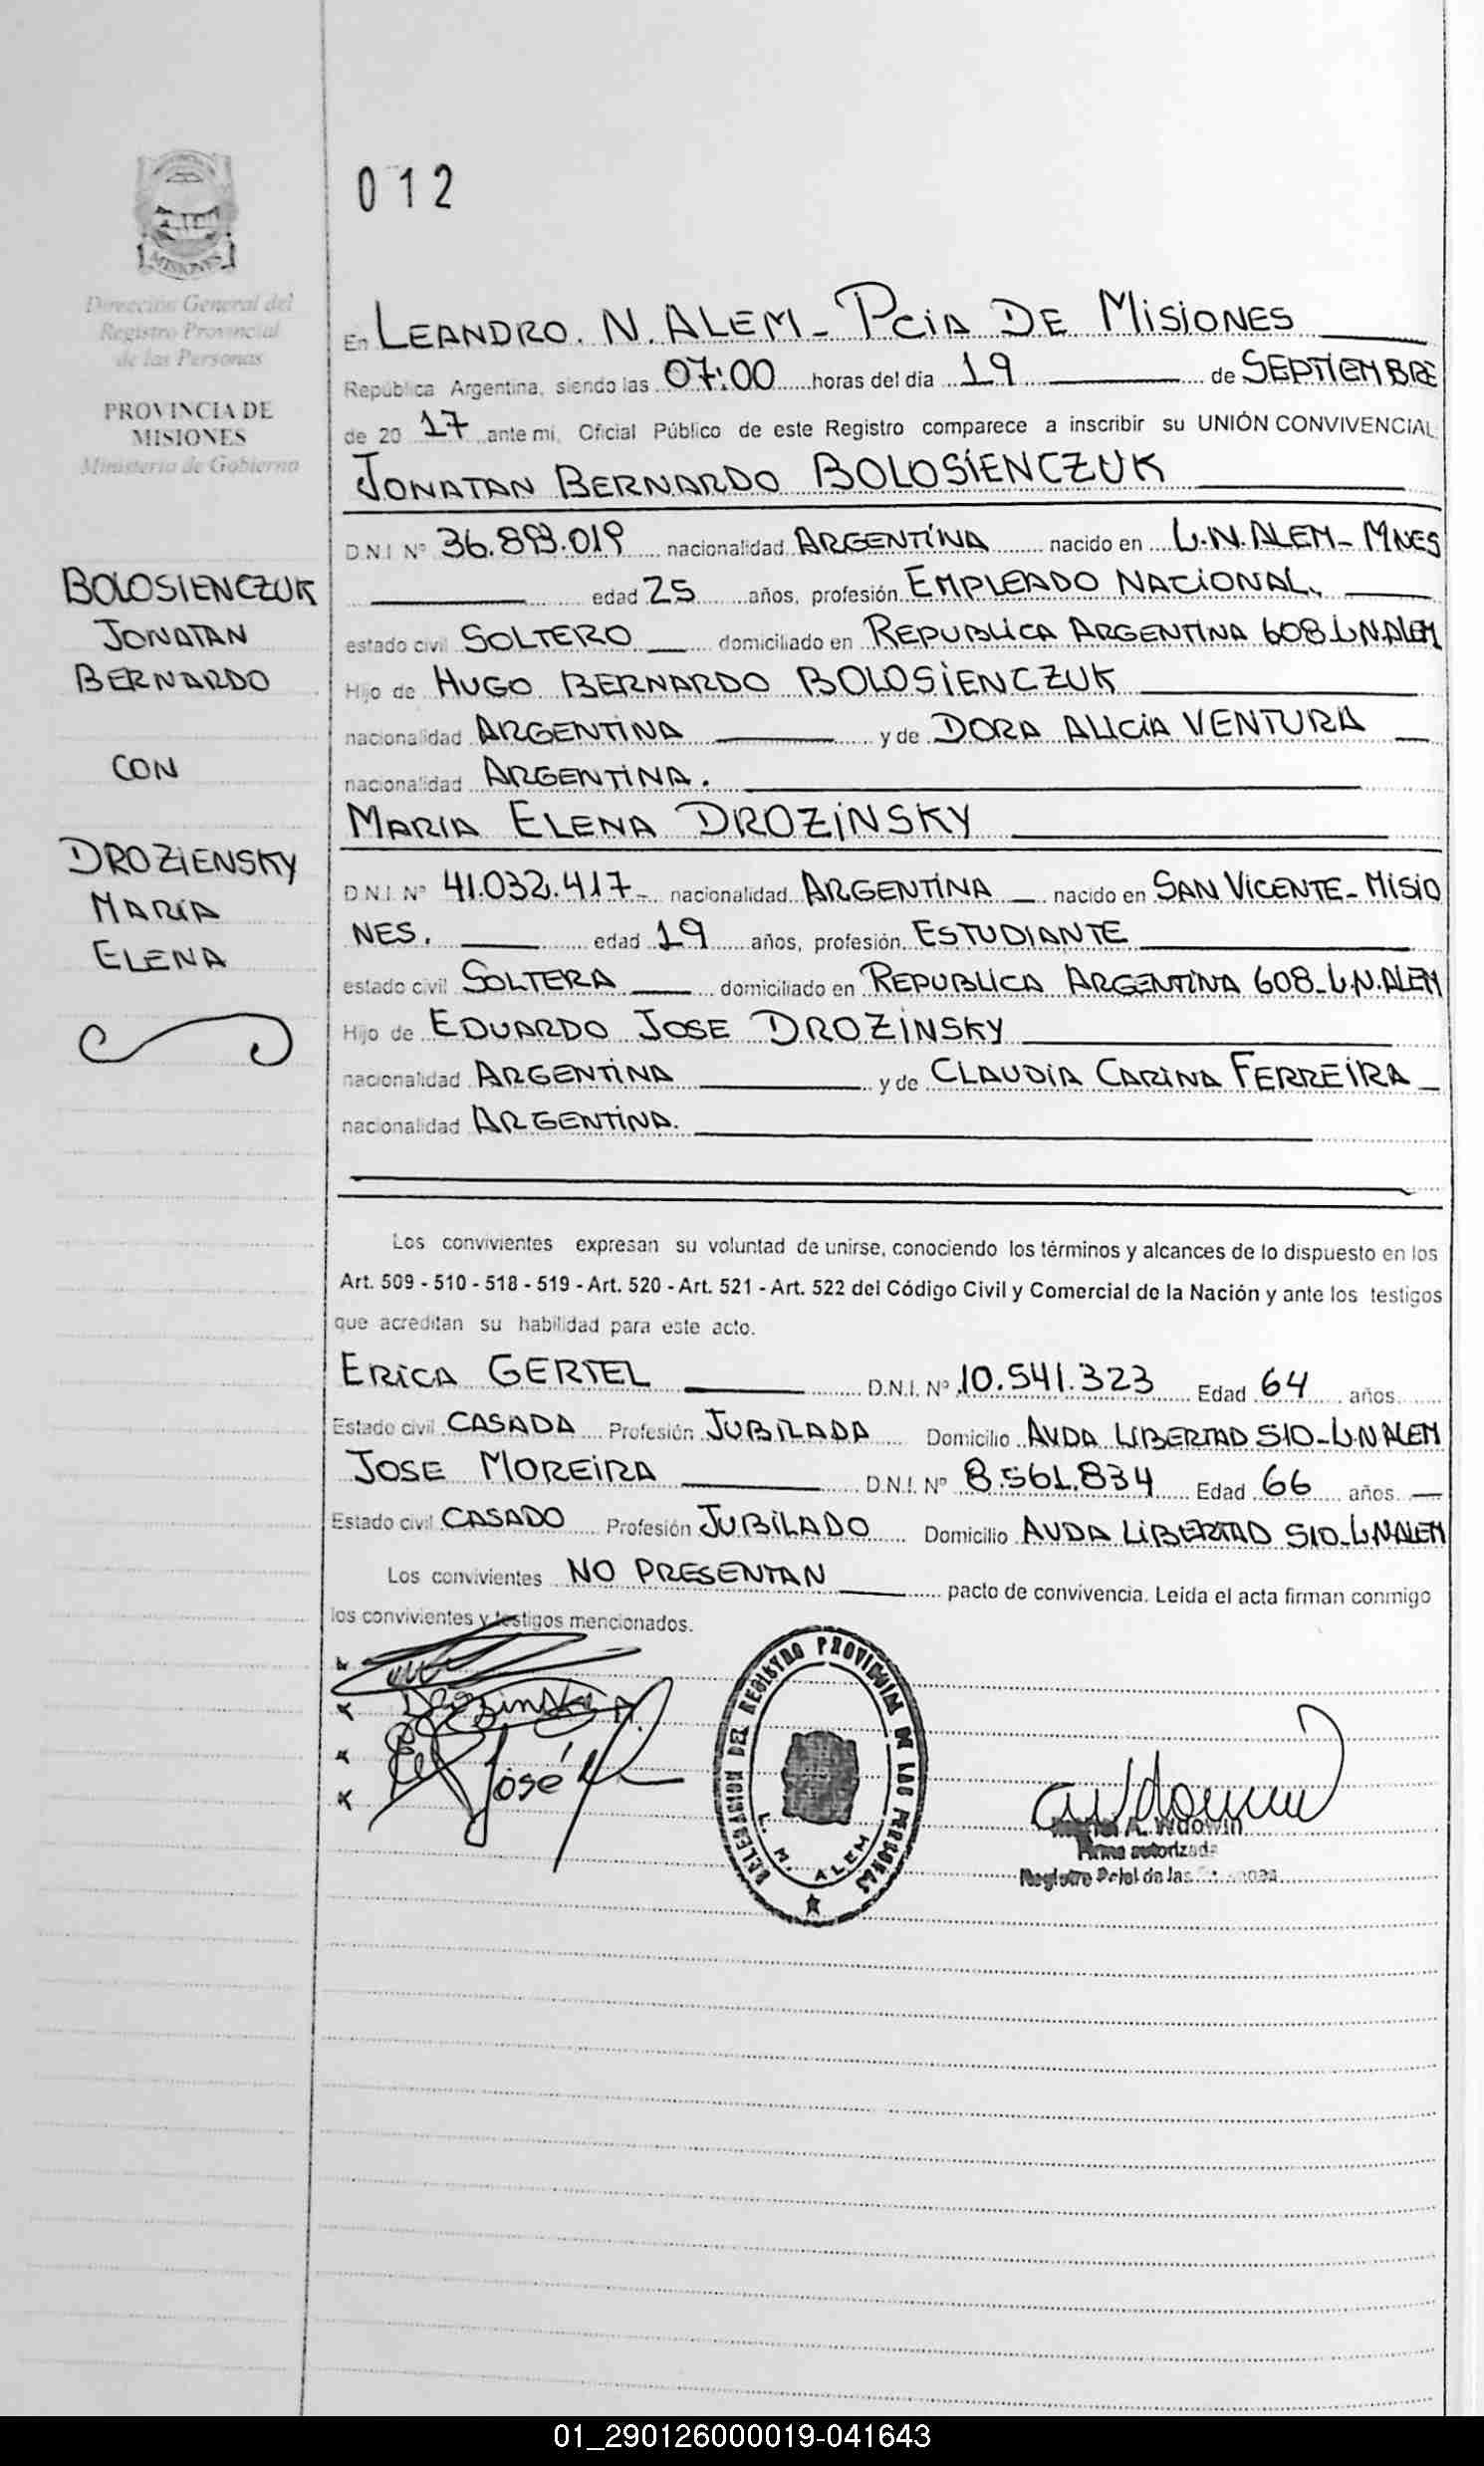 012
MISIONES
Dirección General del
Registro Provincial
de las Personas
PROVINCIA DE
MISIONES
Ministerio de Gobierno
BOLOSIENCZUK
JONATAN
BERNARDO
CON
DROZIENSKY
MARIA
ELENA
En LEANDRO. N. ALEM - PCIA DE MISIONES
República Argentina, siendo las 07:00 horas del día 19 de SEPTIEMBRE
de 20 17 ante mí, Oficial Público de este Registro comparece a inscribir su UNIÓN CONVIVENCIAL
JONATAN BERNARDO BOLOSIENCZUK
D.N.I. Nº 36.893.019 nacionalidad ARGENTINA nacido en L.N.ALEM - MNES
edad 25 años, profesión EMPLEADO NACIONAL.
estado civil SOLTERO domiciliado en REPUBLICA ARGENTINA 608 L.N.ALEM
Hijo de HUGO BERNARDO BOLOSIENCZUK
nacionalidad ARGENTINA y de DORA ALICIA VENTURA
nacionalidad ARGENTINA.
MARIA ELENA DROZINSKY
D.N.I. Nº 41.032.417- nacionalidad ARGENTINA nacido en SAN VICENTE - MISIO
NES. edad 19 años, profesión ESTUDIANTE
estado civil SOLTERA domiciliado en REPUBLICA ARGENTINA 608-L.N.ALEM
Hijo de EDUARDO JOSE DROZINSKY
nacionalidad ARGENTINA y de CLAUDIA CARINA FERREIRA
nacionalidad ARGENTINA.
Los convivientes expresan su voluntad de unirse, conociendo los términos y alcances de lo dispuesto en los
Art. 509 - 510 - 518 - 519 - Art. 520 - Art. 521 - Art. 522 del Código Civil y Comercial de la Nación y ante los testigos
que acreditan su habilidad para este acto.
ERICA GERTEL D.N.I. Nº 10.541.323 Edad 64 años
Estado civil CASADA Profesión JUBILADA Domicilio AVDA LIBERTAD 510-L.N ALEM
JOSE MOREIRA D.N.I. Nº 8.561.834 Edad 66 años
Estado civil CASADO Profesión JUBILADO Domicilio AVDA LIBERTAD 510-L.N ALEM
Los convivientes NO PRESENTAN pacto de convivencia. Leída el acta firman conmigo
los convivientes y testigos mencionados.
Drozinsky
José
DELEGACION DEL REGISTRO PROVINCIAL DE LAS PERSONAS
L. N. ALEM
A. Wdowin
Firma autorizada
Registro Pcial de las
01_290126000019-041643